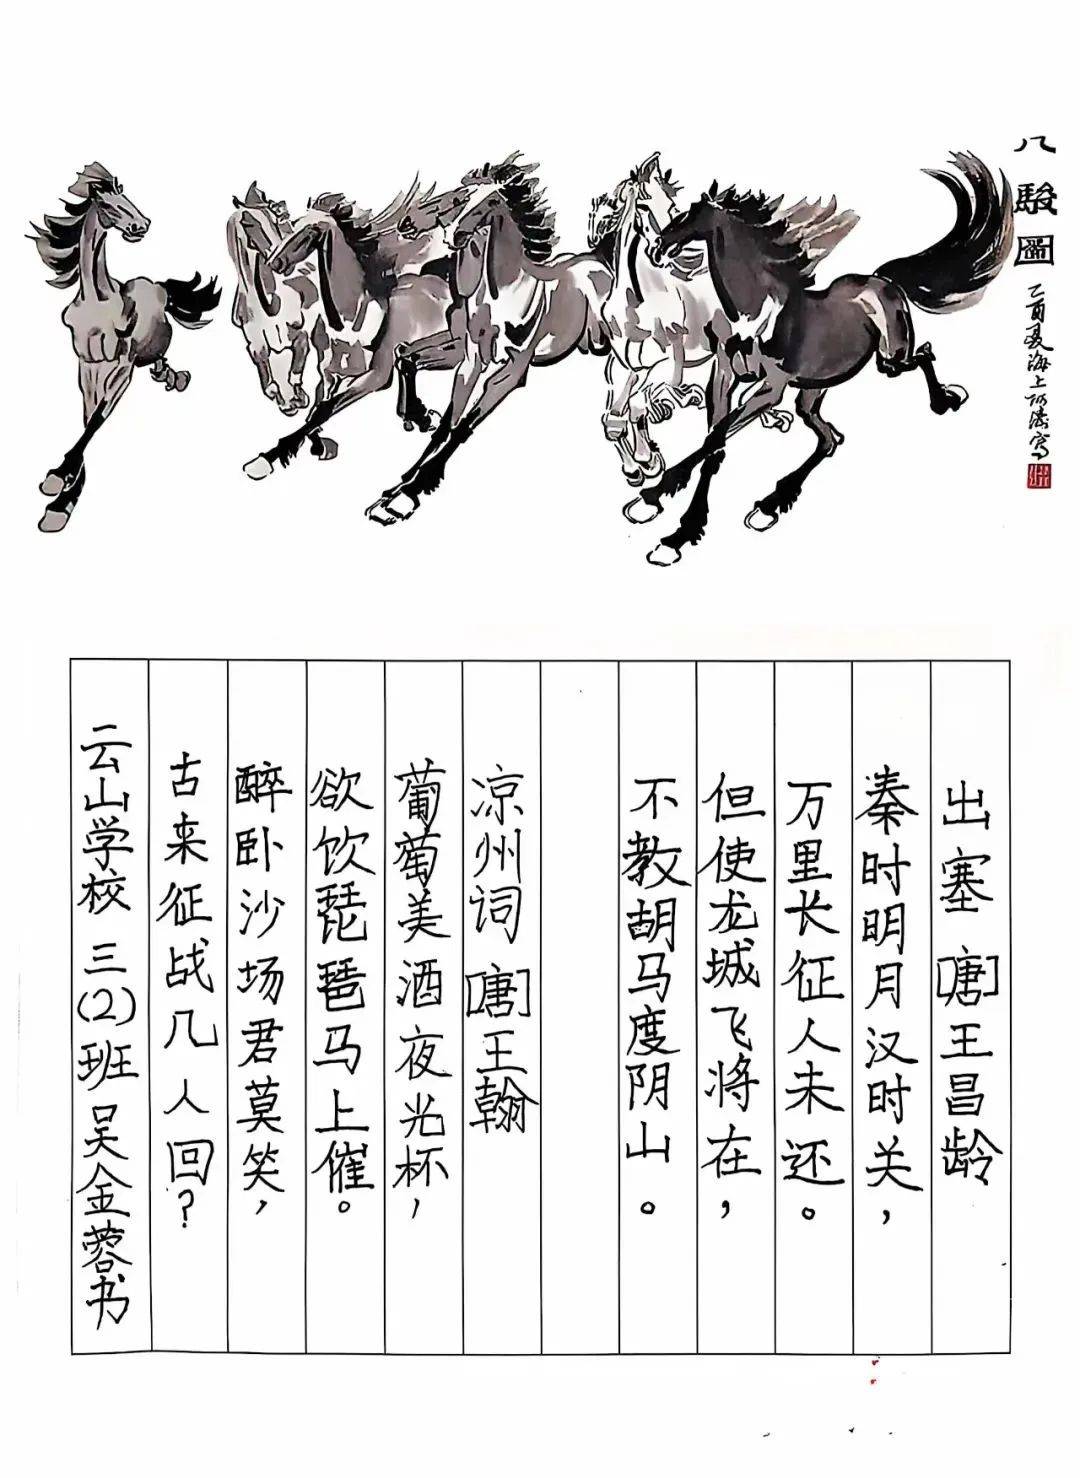 八駿圖
乙酉夏海上
出塞 [唐]王昌龄
秦时明月汉时关，
万里长征人未还。
但使龙城飞将在，
不教胡马度阴山。
凉州词 [唐]王翰
葡萄美酒夜光杯，
欲饮琵琶马上催。
醉卧沙场君莫笑，
古来征战几人回？
云山学校 三(2)班 吴金蓉书